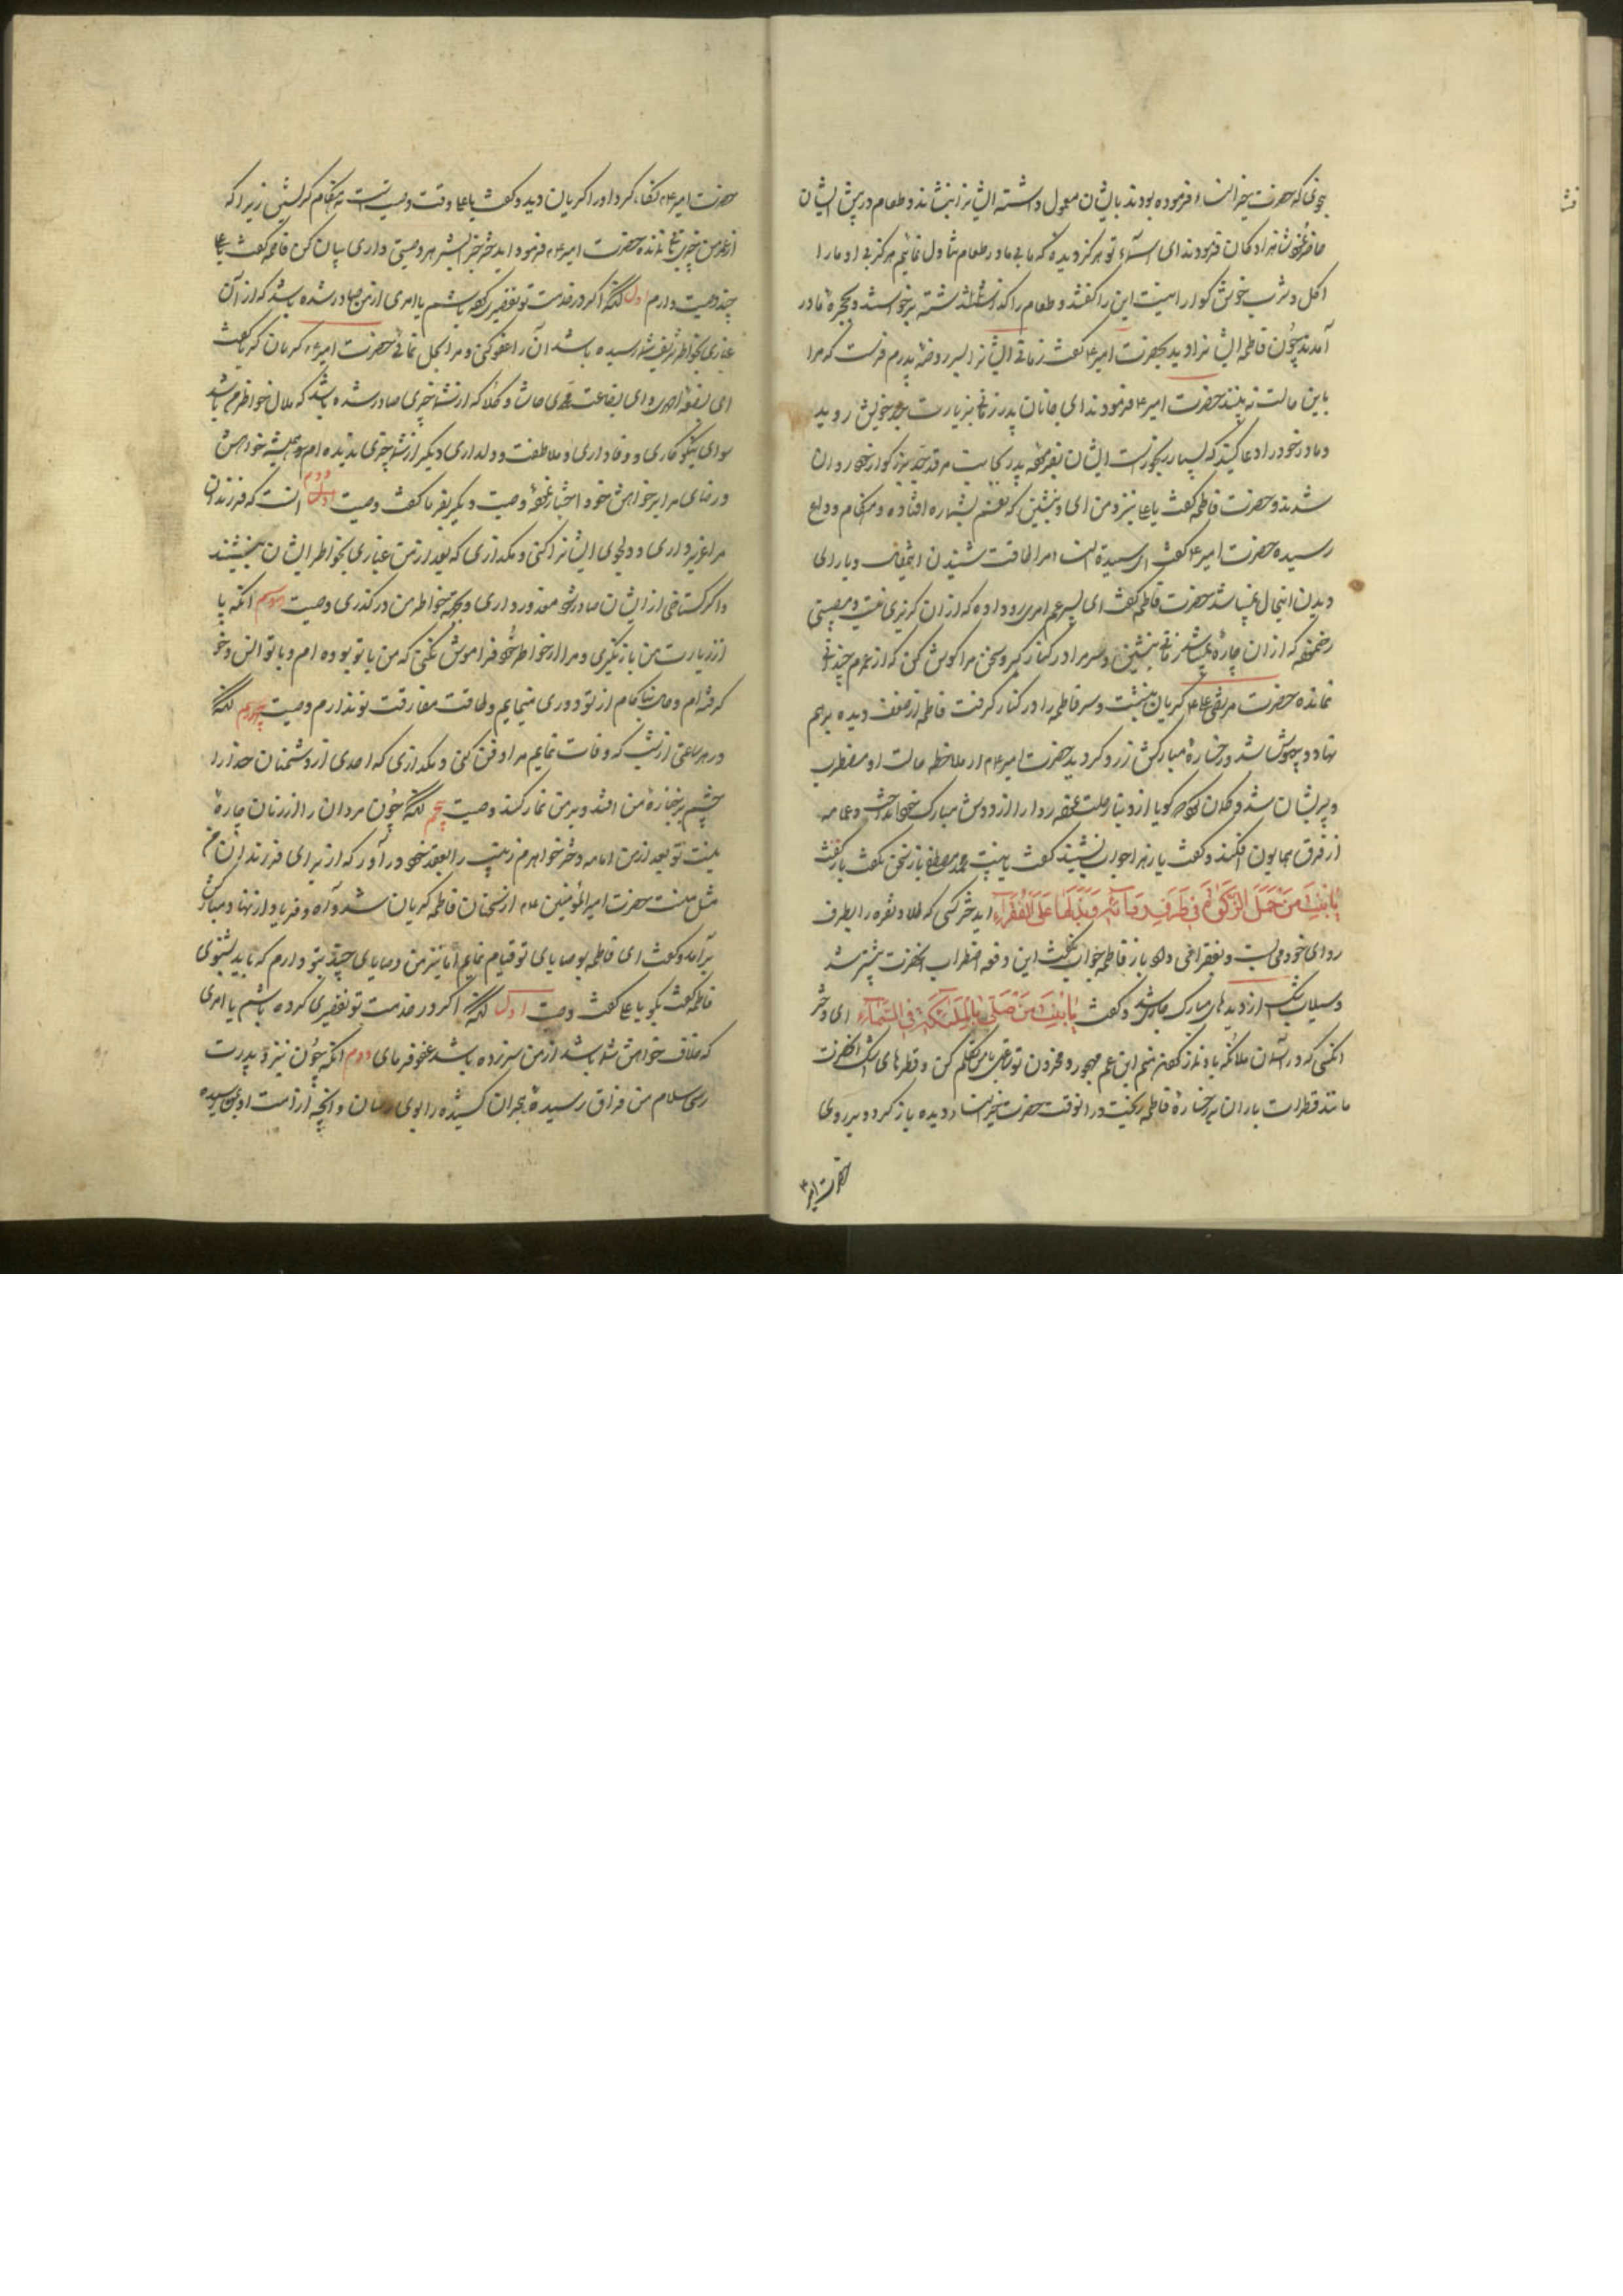 بنوعی که حضرت خیر النساء فرموده بودند بایشان معمول داشته ایشانرا بنشاندند و طعام در پیش ایشان
حاضر شاهزادکان فرمودند ای اسماء تو هرکز دیده که ما بی مادر طعام تناول نمائیم هرکز بی او ما را
اکل و شرب خوش کوارا نیست این را کفتند و طعام را کذاشتند برخواستند و بحجره مادر
آمدند چون فاطمه ایشانرا دید بحضرت امیر ع کفت زمانی ایشانرا بسر روضه پدرم فرست که مرا
باین حالت نه بینند حضرت امیر ع فرمودند ای جانان پدر زمانی بزیارت جد خویش روید
و مادر خود را دعا کنید که بسیار رنجور است ایشان بفرموده پدر بجانب مرقد جد بزرکوار خود روان
شدند و حضرت فاطمه کفت یا علی نزد من ای و بنشین که نفسم بشماره افتاده و هنکام وداع
رسیده حضرت امیر ع کفت ای سیدة النساء مرا طاقت شنیدن اینمقال و یارای
دیدن اینحال نمیباشد حضرت فاطمه کفت ای پسر عم امری رو داده که از ان کریزی نیست و مصیبتی
که از ان چاره نمیباشد زمانی بنشین و سر مرا در کنار کیر و سخن مرا کوش کن که از عمرم چندانی
نمانده حضرت مرتضی علی ع کریان بنشست و سر فاطمه را در کنار کرفت فاطمه از ضعف دیده برهم
نهاد و بیهوش شد و رخساره مبارکش زرد کردید حضرت امیر ع از ملاحظه حالت او مضطرب
و پریشان شد و کمان کرد که کویا از دنیا رحلت نموده ردا را از دوش مبارک خود انداخت و عمامه
از فرق همایون افکند و کفت یا زهرا جواب نشنید کفت یا بنت محمد مصطفی باز سخن نکفت باز کفت
یا بنت من حمل الزکوة فی طرف ردائه و بذلها علی الفقراء ایدختر کسی که طلا و نقره را بطرف
ردای خود می بست و بفقرا می داد باز فاطمه جواب نکفت این دفعه اضطراب انحضرت بیشتر شد
و سیلاب اشک از دیدهای مبارک جاری شد و کفت یا بنت من صلی بالملئکة فی السماء ای دختر
انکسی که در آسمان ملائکه با او نماز کردند منم ابن عم مهجور و محزون تو علی با من تکلم کن و قطرهای اشک انحضرت
مانند قطرات باران بر رخساره فاطمه ریخت در انوقت حضرت خیر النساء دیده باز کرد و بر روی
حضرت امیر ع
حضرت امیر ع نکاه کرد او را کریان دید و کفت یا علی وقت وصیت است نه هنکام کریستن زیرا که
از عمر من چیزی نمانده حضرت امیر ع فرمود ایدختر خیر البشر هر وصیتی داری بیان کن فاطمه کفت یا علی
چند وصیت دارم اول آنکه اکر در خدمت تو تقصیر کرده باشم یا امری از من صادر شده باشد که از آن
غباری بخاطر شریف شما رسیده باشد آن را عفو کنی و مرا بحل نمائی حضرت امیر ع کریان کردید کفت
ای بضعه احمدی و ای بضاعت محمدی حاشا و کلا که از شما چیزی صادر شده باشد که ملال خواطرم باشد
سوای نیکو کاری و وفاداری و ملاطفت و دلداری دیکر از شما چیزی ندیده ام و همیشه خواهش
و رضای مرا بر خواهش خود اختیار نموده وصیت دیکر بفرما کفت وصیت دوم انست که فرزندان
مرا عزیز داری و دلجوی ایشانرا کنی و نکذاری که بعد از من غباری بخواطر ایشان بنشیند
و اکر کستاخی از ایشان صادر شود معذور داری و بجهة خواطر من در کذری وصیت سوم آنکه پا
از زیارت من باز نکیری و مرا از خواطر خود فراموش نکنی که من با تو بوده ام و با تو انس و خو
کرفته ام و حال ناکام از تو دوری مینمایم و طاقت مفارقت تو ندارم وصیت چهارم آنکه
در هر ساعتی از شب که وفات نمایم مرا دفن کنی و نکذاری که احدی از دشمنان خدا را
چشم بر جنازه من افتد و بر من نماز کنند وصیت پنجم آنکه چون مردان را از زنان چاره
نیست تو بعد از من امامه دختر خواهرم زینب را بعقد خود در آور که از برای فرزندان من
مثل منست حضرت امیر المؤمنین ع از سخنان فاطمه کریان شد و آه و فریاد از نهاد مبارکش
برآمد و کفت ای فاطمه بوصایای تو قیام نمایم اما نیز من وصایای چند بتو دارم که باید بشنوی
فاطمه کفت بکو یا علی کفت وصیت اول آنکه اکر در خدمت تو تقصیری کرده باشم یا امری
که خلاف خواهش شما باشد از من سر زده باشد عفو فرمای دوم آنکه چون نزد پدرت
رسی سلام من فراق رسیده هجران کشیده را بوی رسان و آنچه از امت او بمن رسیده